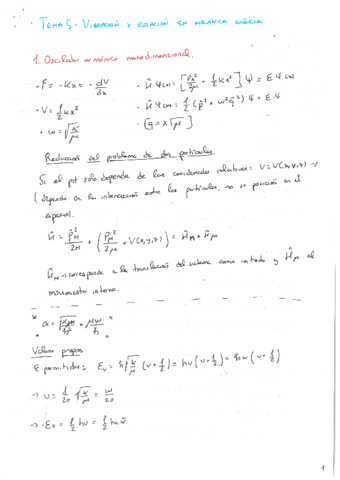 - TEMA 5 - VIBRACIÓN Y ROTACIÓN EN MECÁNICA CUÁNTICA
1. Oscilador armónico monodimensional.
· F = -Kx = - dV/dx
· Ĥ Ψ(x) = [P̂x²/2μ + 1/2 kx²] Ψ = E Ψ(x)
· V = 1/2 kx²
· Ĥ Ψ(x) = 1/2 (p̂² + ω²q̂²) Ψ = E·Ψ
· ω = √(k/μ)
· (q = x√μ)
Reducción del problema de dos partículas.
Si el pot solo depende de las coordenadas relativas: V = V(x,y,z) →
(depende de la interacción entre las partículas, no su posición en el
espacio).
Ĥ = P̂M²/2M + (P̂μ²/2μ + V(x,y,z)) = ĤM + Ĥμ
ĤM → corresponde a la translación del sistema como un todo y Ĥμ al
movimiento interno.
* α = √(kμ/ħ²) = μω/ħ
Valores propios
E permitidas: Ev = ħ√(k/μ) (v + 1/2) = hν (v + 1/2) = ħω (v + 1/2)
→ ν = 1/2π √(k/μ) = ω/2π
→ · E0 = 1/2 hν = 1/2 hc ν̃
1